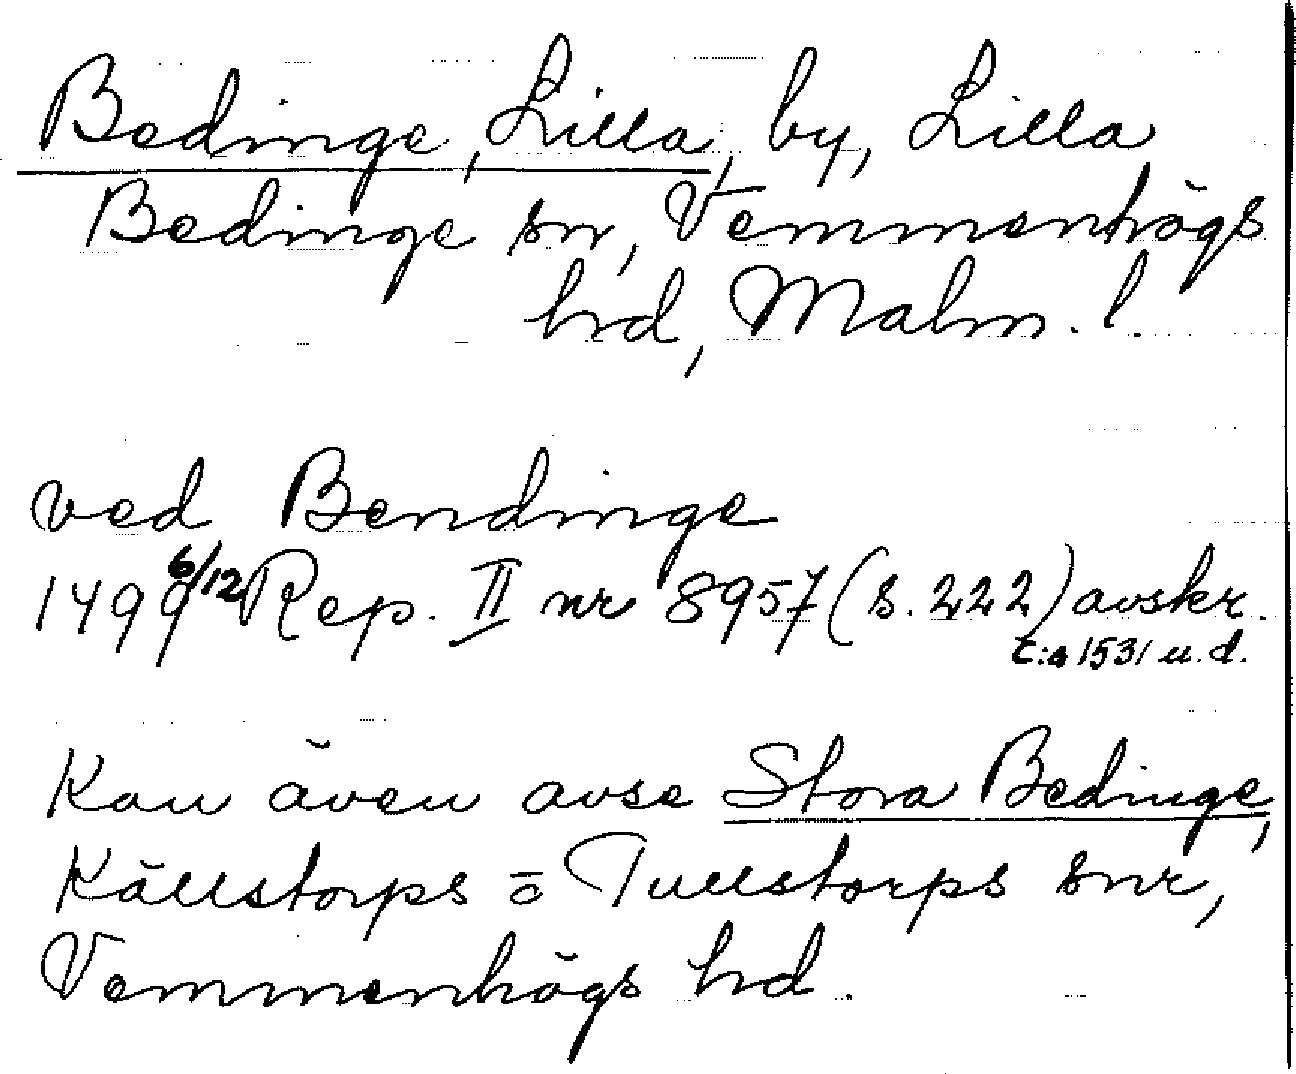 Bedinge, Lilla, by, Lilla
Bedinge sn, Vemmenhögs
hd, Malm. l.
ved Bendinge
1499 6/12 Rep. II nr 8957 (s. 222) avskr.
c:a 1531 u.d.
Kan även avse Stora Bedinge,
Källstorps o Tullstorps snr,
Vemmenhögs hd.